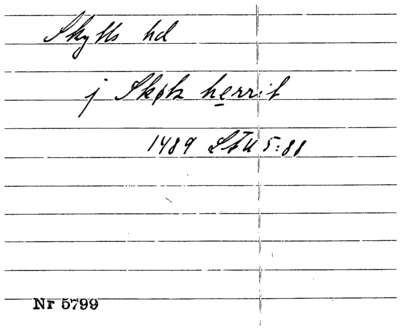 Skytts hd
j Skøtz herrit
1489 STU 5:88
Nr 5799